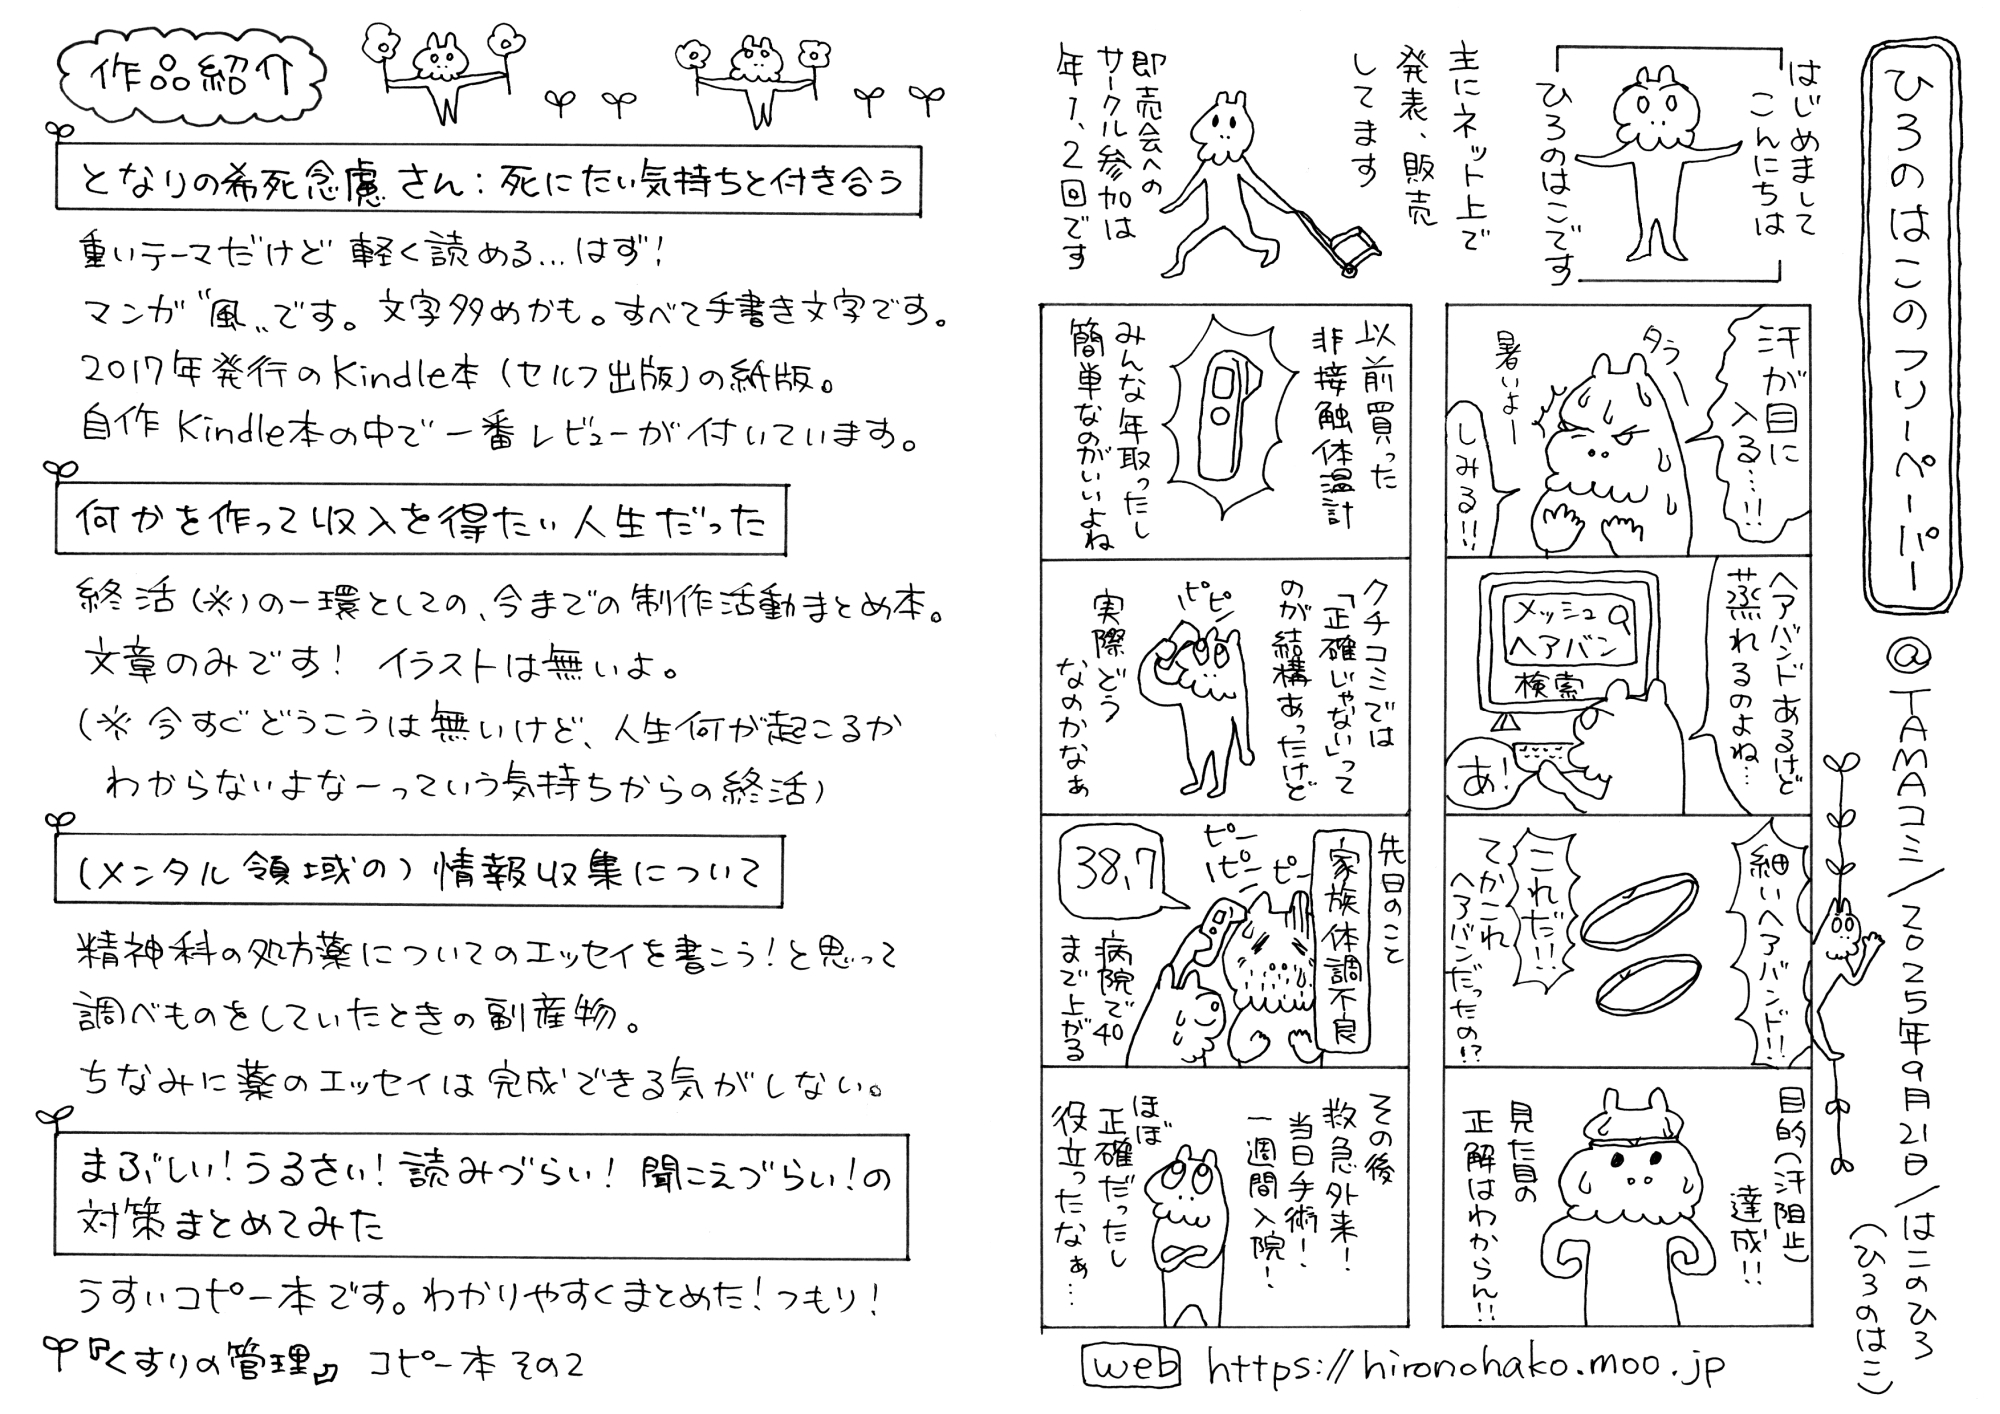 ひろのはこのフリーペーパー
@TAMAコミ/2025年9月21日/はこのひろ
(ひろのはこ)
はじめまして
こんにちは
ひろのはこです
主にネット上で
発表、販売
してます
即売会への
サークル参加は
年1、2回です
汗が目に
入る…!!
タラ
暑いよー
しみる!!
ヘアバンドあるけど
蒸れるのよね…
メッシュ
ヘアバン
検索
あ!
細いヘアバンド!!
これだ!!
てかこれ
ヘアバンだったの!?
目的(汗阻止)
達成!!
見た目の
正解はわからん!!
以前買った
非接触体温計
みんな年取ったし
簡単なのがいいよね
クチコミでは
「正確じゃない」って
のが結構あったけど
ピピン
実際どう
なのかなぁ
先日のこと
家族体調不良
ピー
ピピー
ピー
38,7
病院で40
まで上がる
その後
救急外来!
当日手術!
一週間入院!
ほぼ
正確だったし
役立ったなぁ…
web https://hironohako.moo.jp
作品紹介
となりの希死念慮さん:死にたい気持ちと付き合う
重いテーマだけど軽く読める…はず!
マンガ〝風〟です。文字多めかも。すべて手書き文字です。
2017年発行のKindle本(セルフ出版)の紙版。
自作Kindle本の中で一番レビューが付いています。
何かを作って収入を得たい人生だった
終活(※)の一環としての、今までの制作活動まとめ本。
文章のみです! イラストは無いよ。
(※今すぐどうこうは無いけど、人生何が起こるか
わからないよなーっていう気持ちからの終活)
(メンタル領域の)情報収集について
精神科の処方薬についてのエッセイを書こう!と思って
調べものをしていたときの副産物。
ちなみに薬のエッセイは完成できる気がしない。
まぶしい!うるさい!読みづらい!聞こえづらい!の
対策まとめてみた
うすいコピー本です。わかりやすくまとめた!つもり!
『くすりの管理』 コピー本その2